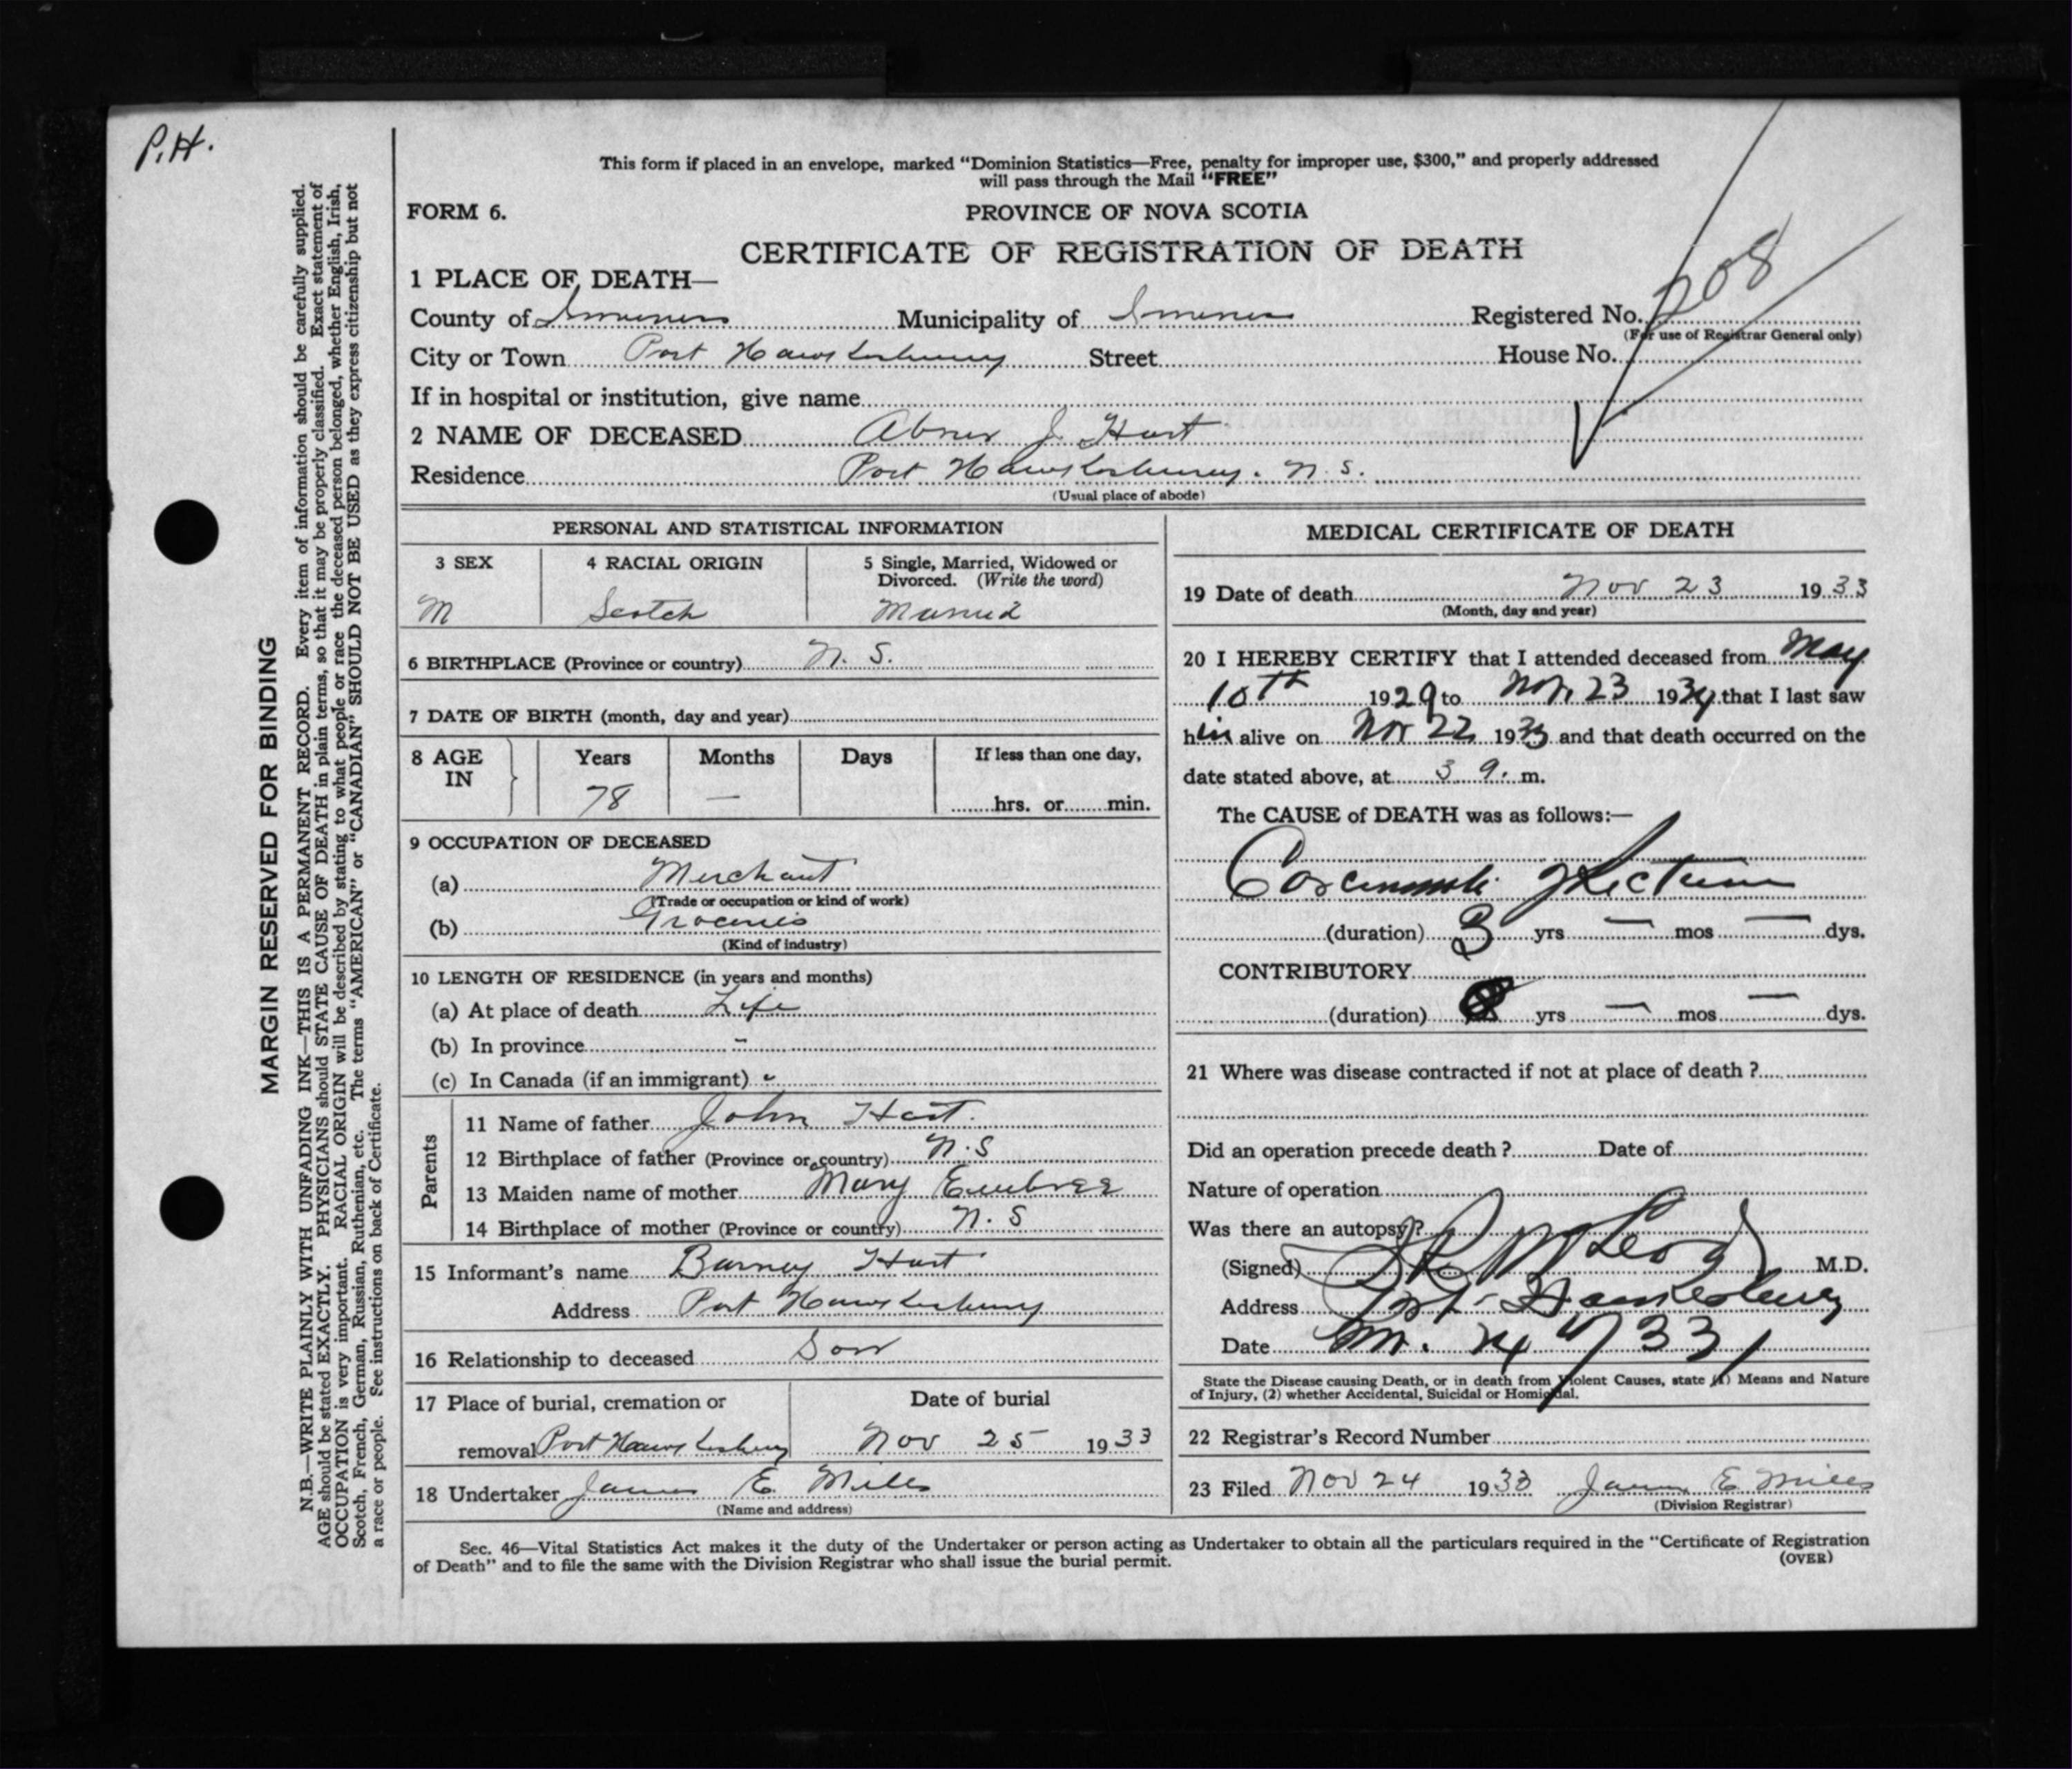 P.H.
MARGIN RESERVED FOR BINDING
N.B.—WRITE PLAINLY WITH UNFADING INK—THIS IS A PERMANENT RECORD. Every item of information should be carefully supplied.
AGE should be stated EXACTLY. PHYSICIANS should STATE CAUSE OF DEATH in plain terms, so that it may be properly classified. Exact statement of
OCCUPATION is very important. RACIAL ORIGIN will be described by stating to what people or race the deceased person belonged, whether English, Irish,
Scotch, French, German, Russian, Ruthenian, etc. The terms "AMERICAN" or "CANADIAN" SHOULD NOT BE USED as they express citizenship but not
a race or people. See instructions on back of Certificate.
This form if placed in an envelope, marked "Dominion Statistics—Free, penalty for improper use, $300," and properly addressed
will pass through the Mail "FREE"
FORM 6. PROVINCE OF NOVA SCOTIA
CERTIFICATE OF REGISTRATION OF DEATH
1 PLACE OF DEATH—
County of Inverness Municipality of Inverness Registered No. 208
(For use of Registrar General only)
City or Town Port Hawkesbury Street House No.
If in hospital or institution, give name
2 NAME OF DECEASED Abner J. Hart
Residence Port Hawkesbury. N.S.
(Usual place of abode)
PERSONAL AND STATISTICAL INFORMATION
3 SEX 4 RACIAL ORIGIN 5 Single, Married, Widowed or
Divorced. (Write the word)
M Scotch Married
6 BIRTHPLACE (Province or country) N. S.
7 DATE OF BIRTH (month, day and year)
8 AGE IN Years Months Days If less than one day,
78 — hrs. or min.
9 OCCUPATION OF DECEASED
(a) Merchant
(Trade or occupation or kind of work)
(b) Groceries
(Kind of industry)
10 LENGTH OF RESIDENCE (in years and months)
(a) At place of death Life
(b) In province -
(c) In Canada (if an immigrant)
Parents
11 Name of father John Hart.
12 Birthplace of father (Province or country) N.S
13 Maiden name of mother Mary Embree
14 Birthplace of mother (Province or country) N.S
15 Informant's name Burney Hart
Address Port Hawkesbury
16 Relationship to deceased Son
17 Place of burial, cremation or Date of burial
removal Port Hawkesbury Nov 25 1933
18 Undertaker James E. Mills
(Name and address)
MEDICAL CERTIFICATE OF DEATH
19 Date of death Nov 23 1933
(Month, day and year)
20 I HEREBY CERTIFY that I attended deceased from May
10th 1929 to Nov. 23 193 that I last saw
him alive on Nov 22 1933 and that death occurred on the
date stated above, at 3 a. m.
The CAUSE of DEATH was as follows:—
Rectum
(duration) 3 yrs — mos — dys.
CONTRIBUTORY
(duration) yrs — mos — dys.
21 Where was disease contracted if not at place of death ?
Did an operation precede death ? Date of
Nature of operation
Was there an autopsy?
(Signed) McLeod M.D.
Address Port Hawkesbury
Date 24 33
State the Disease causing Death, or in death from Violent Causes, state (1) Means and Nature
of Injury, (2) whether Accidental, Suicidal or Homicidal.
22 Registrar's Record Number
23 Filed Nov 24 1933 James E. Mills
(Division Registrar)
Sec. 46—Vital Statistics Act makes it the duty of the Undertaker or person acting as Undertaker to obtain all the particulars required in the "Certificate of Registration
of Death" and to file the same with the Division Registrar who shall issue the burial permit. (OVER)